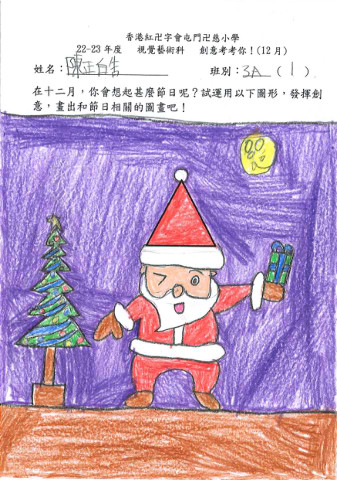 香港紅卍字會屯門卍慈小學
22-23 年度 視覺藝術科 創意考考你！(12 月)
姓名： 陳正皓 班別：3A （ 1 ）
在十二月，你會想起甚麼節日呢？試運用以下圖形，發揮創
意，畫出和節日相關的圖畫吧！